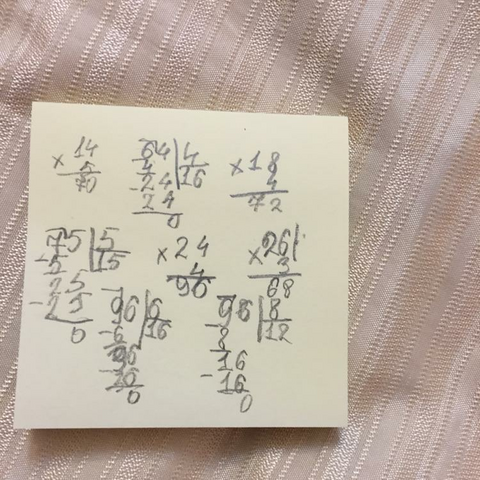 × 14
5
70
64 | 4
4 | 16
24
- 24
0
× 18
4
72
75 | 5
- 5 | 15
25
- 25
0
× 24
4
96
× 26
3
68
96 | 6
- 6 | 16
36
- 36
0
96 | 8
- 8 | 12
16
- 16
0